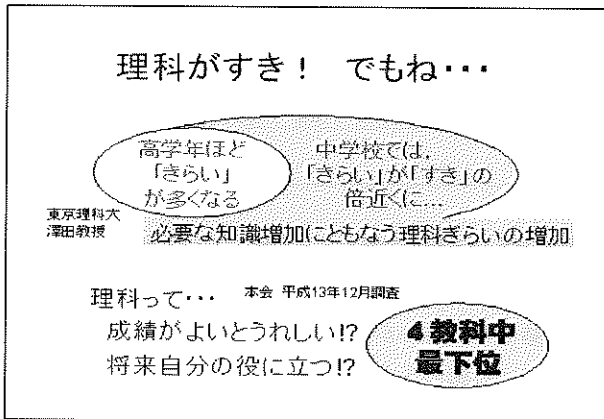 理科がすき！　でもね・・・
高学年ほど
「きらい」
が多くなる
中学校では，
「きらい」が「すき」の
倍近くに…
東京理科大
澤田教授
必要な知識増加にともなう理科ぎらいの増加
理科って・・・
本会 平成13年12月調査
成績がよいとうれしい!?
将来自分の役に立つ!?
４教科中
最下位